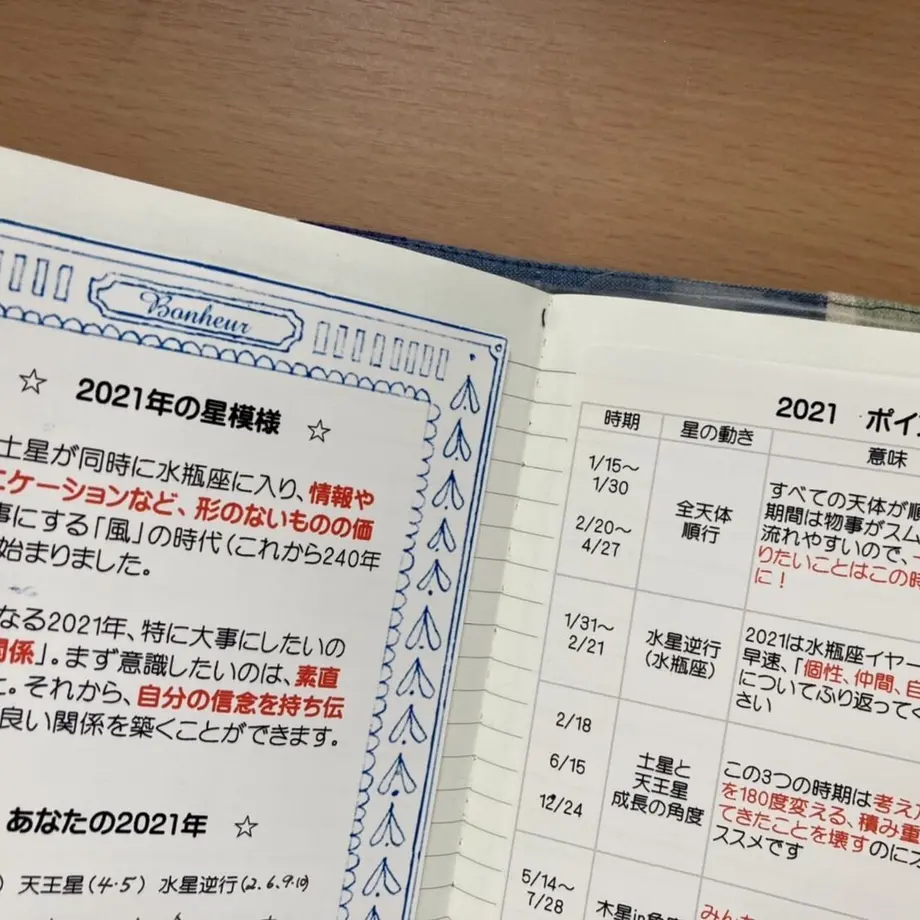 Bonheur
☆ 2021年の星模様 ☆
土星が同時に水瓶座に入り、情報や
ニケーションなど、形のないものの価
事にする「風」の時代(これから240年
始まりました。
なる2021年、特に大事にしたいの
関係」。まず意識したいのは、素直
と。それから、自分の信念を持ち伝
良い関係を築くことができます。
あなたの2021年 ☆
) 天王星(4・5) 水星逆行(2.6.9.10)
2021 ポイ
時期 星の動き 意味
1/15〜
1/30
2/20〜
4/27
全天体
順行
すべての天体が順
期間は物事がスム
流れやすいので、
りたいことはこの時
に!
1/31〜
2/21
水星逆行
(水瓶座)
2021は水瓶座イヤー
早速、「個性、仲間、自
についてふり返って
さい
2/18
6/15
12/24
土星と
天王星
成長の角度
この3つの時期は考え
を180度変える、積み重
てきたことを壊すのにオ
ススメです
5/14〜
7/28
木星in魚座
みん